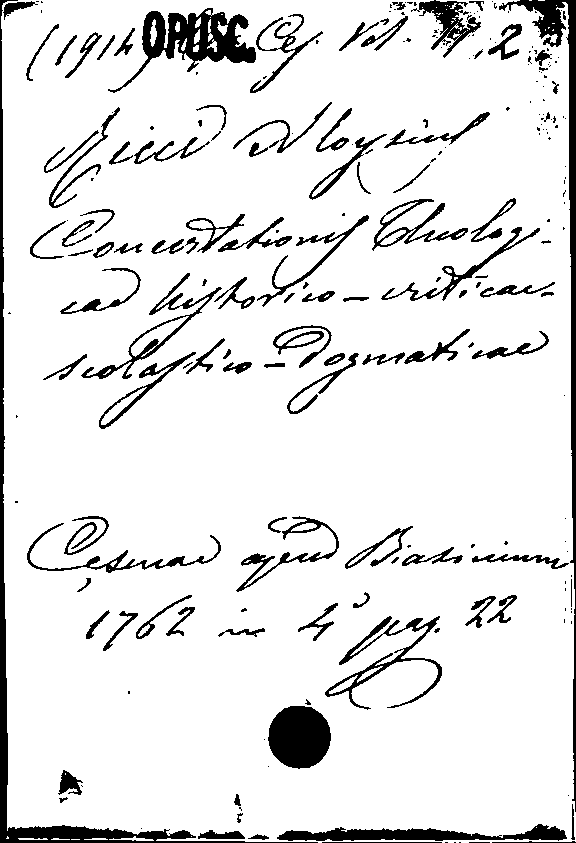 (1914) OPUSC. Ces. Vol. 11, 2
Ricci Aloysius
Concertationis Theologi-
cae historico-criticae-
scolastico-Dogmaticae
Cesenae apud Biasinium
1762 in 4° pag. 22